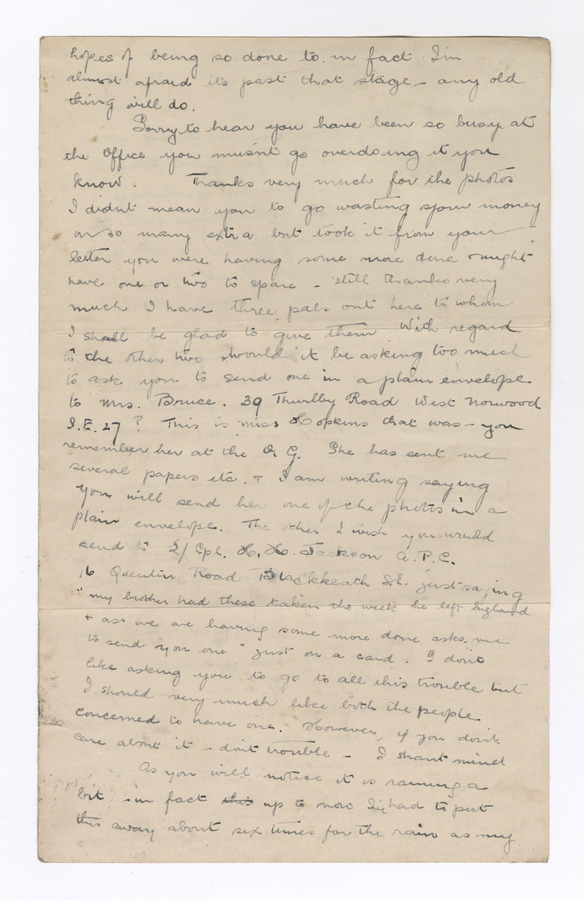 hopes of being so done to. in fact I'm
almost afraid its past that stage - any old
thing will do.
Sorry to hear you have been so busy at
the Office you musn't go overdoing it you
know. Thanks very much for the photos
I didn't mean you to go wasting your money
on so many extra but took it from your
letter you were having some more done & might
have one or two to spare - still thanks very
much I have three pals out here to whom
I shall be glad to give them With regard
to the other two would it be asking too much
to ask you to send one in a plain envelope
to Mrs. Bruce. 39 Thurlby Road West Norwood
S.E. 27? This is Miss Hopkins that was - you
remember her at the O.G. She has sent me
several papers etc. & I am writing saying
you will send her one of the photos in a
plain envelope. The other I wish you would
send to 2/Cpl. H. H. Jackson A.P.C.
16 Quentin Road Blackheath S.E. just saying
"my brother had these taken the week he left England
& as we are having some more done asks me
to send you one" just on a card. I don't
like asking you to go to all this trouble but
I should very much like both the people
concerned to have one. However, if you don't
care about it - don't trouble - I shant mind
As you will notice it is raining a
bit, in fact this up to now I've had to put
this away about six times for the rain as my